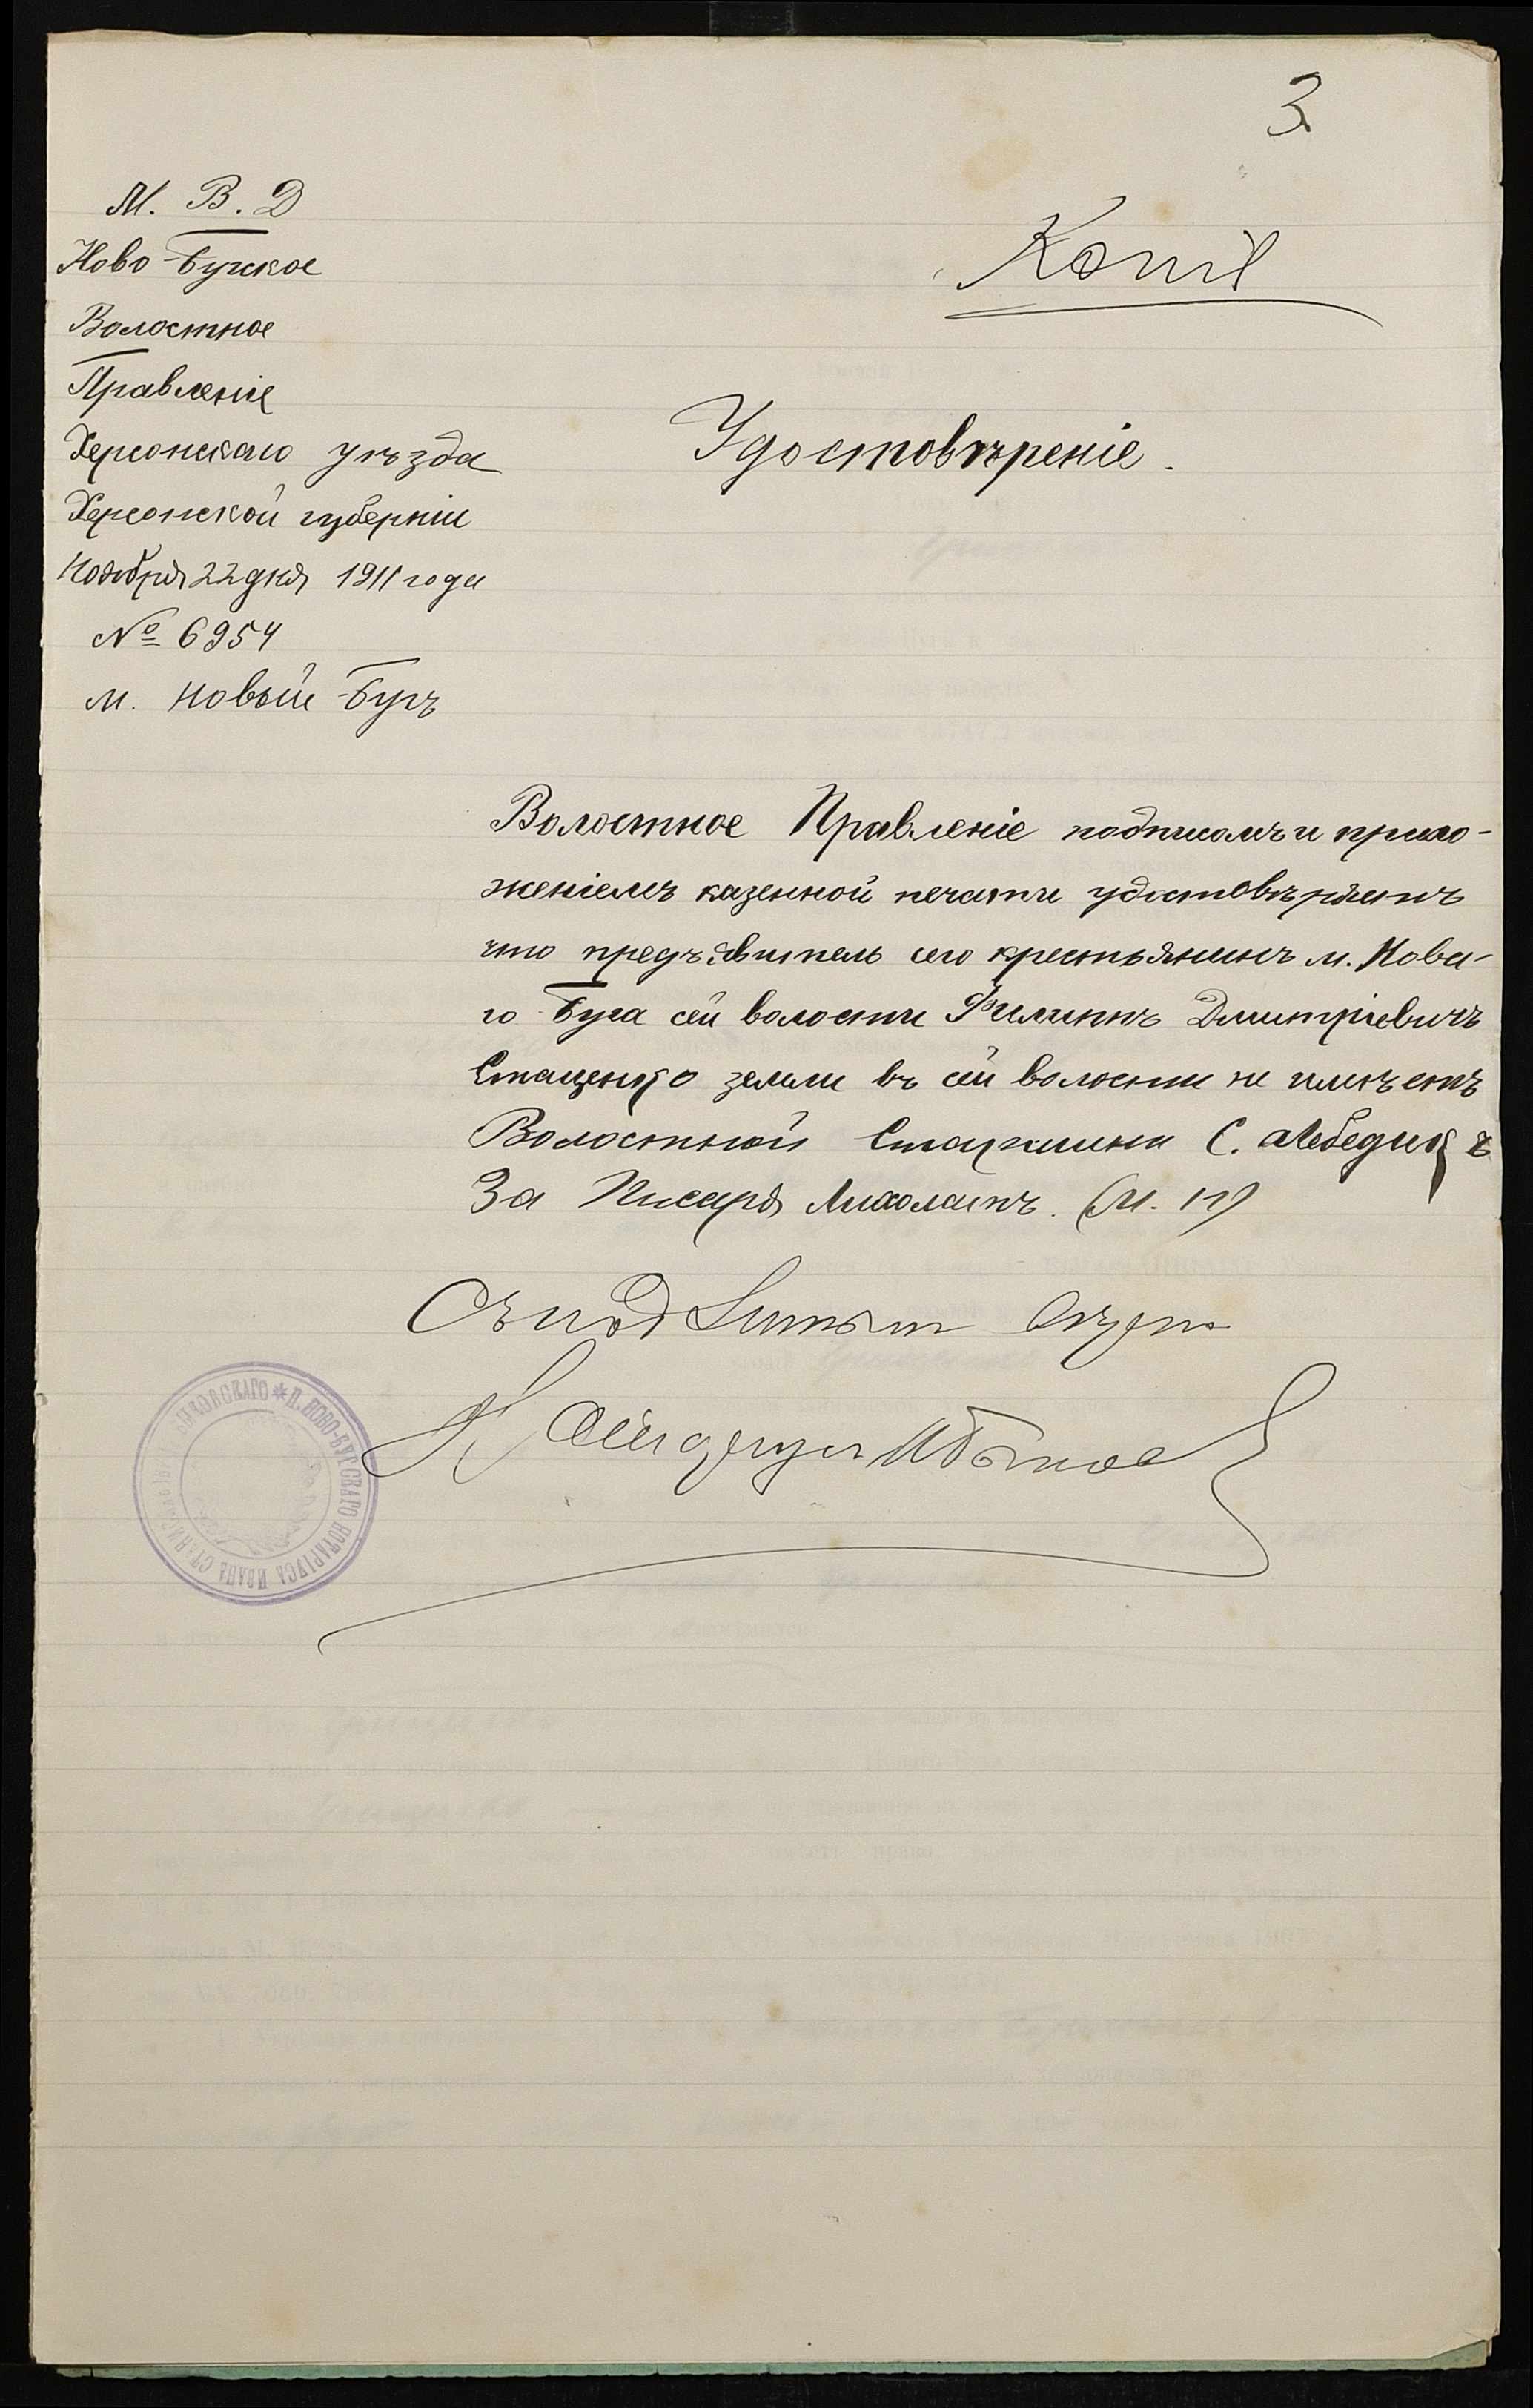 3
М. В. Д
Ново-Бугское
Волостное
Правленіе
Херсонскаго уѣзда
Херсонской губерніи
Ноября 22 дня 1911 года
№ 6954
м. Новый-Бугъ
Копія
Удостовѣреніе.
Волостное Правленіе подписомъ и прило-
женіемъ казенной печати удостовѣряетъ
что предъявитель сего крестьянинъ м. Нова-
го Буга сей волости Филиппъ Дмитріевичъ
Стаценко земли въ сей волости не имѣетъ
Волостной Старшина С. Лебедик
За Писаря (М. П)
Съ подлиннымъ вѣрно
* П. НОВО-БУГСКАГО НОТАРІУСА ИВАНА